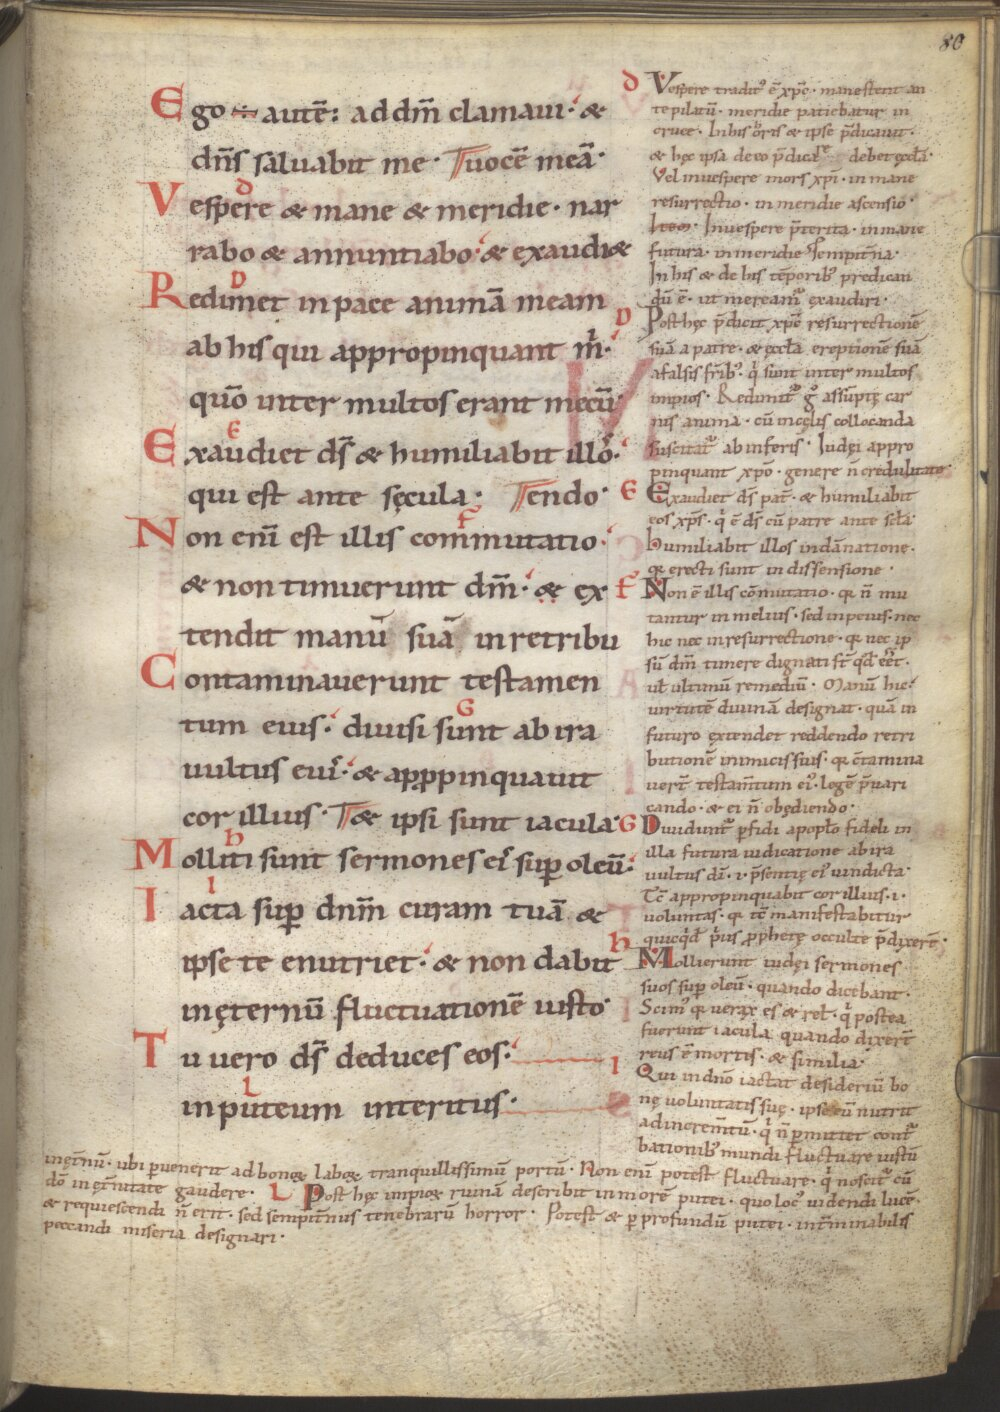 80
Ego ÷ autē: ad dm̄ clamaui· &
dn̄s saluabit me· Tuocē meā·
Vespere & mane & meridie· nar
rabo & annuntiabo· & exaudi&
Redimet in pace animā meam
ab his qui appropinquant m̄·
quō inter multos erant mecū·
Exaudiet ds̄ & humiliabit illō·
qui est ante sęcula· Tendo·
Non enī est illis commutatio·
& non timuerunt dm̄· & ex
tendit manū suā in retribu
Contaminauerunt testamen
tum eius· diuisi sunt ab ira
uultus eui᷒· & appropinquauit
cor illius· T& ipsi sunt iacula·
Molliti sunt sermones ei᷒ sup̄ oleū·
Iacta sup̄ dnm̄ curam tuā &
ipse te enutriet· & non dabit
in ęternū fluctuationē iusto·
Tu uero ds̄ deduces eos·
in puteum interitus·
d Vespere traditᷤ ē xp̄c· mane stent an
te pilatū· meridie patiebatur in
cruce· In his horis & ipse p̄dicauit·
& hęc ipsa de eo p̄dicare debet ęccła·
Vel in uespere mors xp̄i· in mane
resurrectio· in meridie ascensio·
Inuespere p̄terita· in mane
futura· in meridie sempit̄na·
In his & de his tēporibᷤ predican
dū ē· ut mereamur̄ exaudiri·
D Post hęc p̄dicit xp̄c resurrectionē
suā a patre· & ęccła ereptionē suā
a falsis fr̄ibᷤ· q̇ sunt inter multos
impios· Redimit᷑ g̊ assūptę car
nis anima· cū in cęlis collocanda
suscitat᷑ ab inferis· Iudęi appro
pinquant xp̄o· genere n̄ credulitate·
E Exaudiet ds̄ pat̄· & humiliabit
eos xp̄s· q̇ ē ds̄ cū patre ante scła·
humiliabit illos in dānatione·
qꝛ erecti sunt in dissensione·
F Non ē illis cōmutatio· qꝛ n̄ mu
tantur in melius· sed in peius· nec
hic nec in resurrectione· qꝛ nec ip
sū dm̄ timere dignati st̄ qd̄
uł ultimū remediū· Manū hic
uirtutē diuinā designat· quā in
futuro extendet reddendo retri
butionē inimicis suis· qꝛ cōtamina
uert̄ testam̄tum ei᷒· legē p̄uari
cando· & ei n̄ obędiendo·
G Diuidunt᷑ p̄fidi a popło fideli in
illa futura iudicatione ab ira
uultus dī· i· p̄sentię ei᷒ uindicta·
Tc̄ appropinquabit cor illius· i·
uoluntas· qꝛ tc̄ manifestabitur
quicqd̄ p̄us prophetę occulte p̄dixer̄t·
h Mollierunt iudęi sermones
suos sup̄ oleū· quando dicebant·
Scimᷤ qꝛ uerax es & reł· q̇ postea
fuerunt iacula quando dixer̄t
reus ē mortis· & similia·
I Qui in dn̄o iactat desideriū bo
nę uoluntatis suę· ipse eū nutrit
ad increm̄tū· q̇ n̄ p̄mittet cont᷑
bationibᷤ mundi fluctuare iustū
in ęt̄nū· ubi p̄uenerit ad bonoꝝ laboꝝ tranquillissimū portū· Non enī potest fluctuare· q̇ noscit᷑ cū
dō in ęt̄nitate gaudere· L Post hęc impioꝝ ruinā describit in morē putei· quo locᷤ uidendi lucē·
& requiescendi n̄ erit· sed sempit̄nus tenebrarū horror· Potest & p̄ profundū putei· int̄minabilis
peccandi miseria designari·